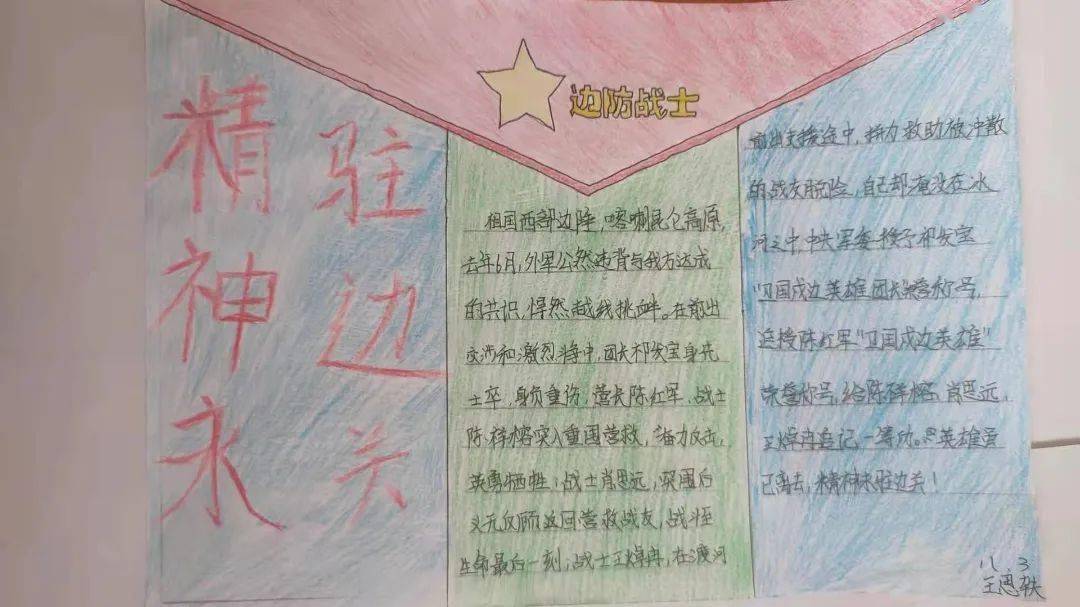 精神永
驻边关
边防战士
祖国西部边陲,喀喇昆仑高原,
去年6月,外军公然违背与我方达成
的共识,悍然越线挑衅。在前出
交涉和激烈斗争中,团长祁发宝身先
士卒,身负重伤;营长陈红军、战士
陈祥榕突入重围营救,奋力反击,
英勇牺牲;战士肖思远,突围后
义无反顾返回营救战友,战斗至
生命最后一刻;战士王焯冉,在渡河
前出支援途中,拼力救助被冲散
的战友脱险,自己却淹没在冰
河之中,中央军委授予祁发宝
"卫国戍边英雄团长"荣誉称号,
追授陈红军"卫国戍边英雄"
荣誉称号,给陈祥榕、肖思远、
王焯冉追记一等功。英雄虽
已离去,精神永驻边关!
八.3
王思轶